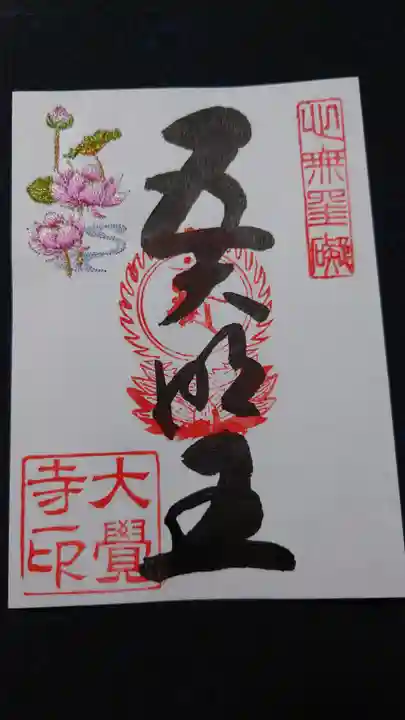 心無罣礙
五大明王
大覺
寺印